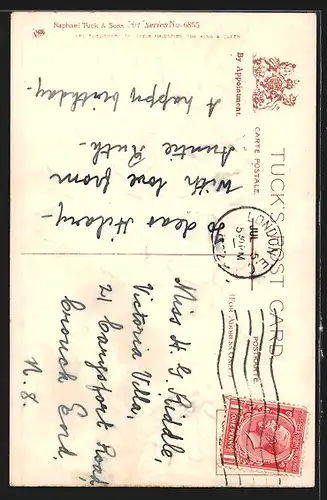 Raphael Tuck & Sons' "Art" Series No. 6855
ART PUBLISHERS TO THEIR MAJESTIES THE KING & QUEEN
By Appointment.
TUCK'S POST CARD
CARTE POSTALE
POSTKARTE
(FOR ADDRESS ONLY)
A happy birthday -
To dear Hilary -
With love from
Auntie Ruth -
Miss H. G. Riddle,
Victoria Villa,
21 Langsford Road,
Crouch End,
N. 8.
LONDON
5 30 PM
JUL 5
ONE PENNY